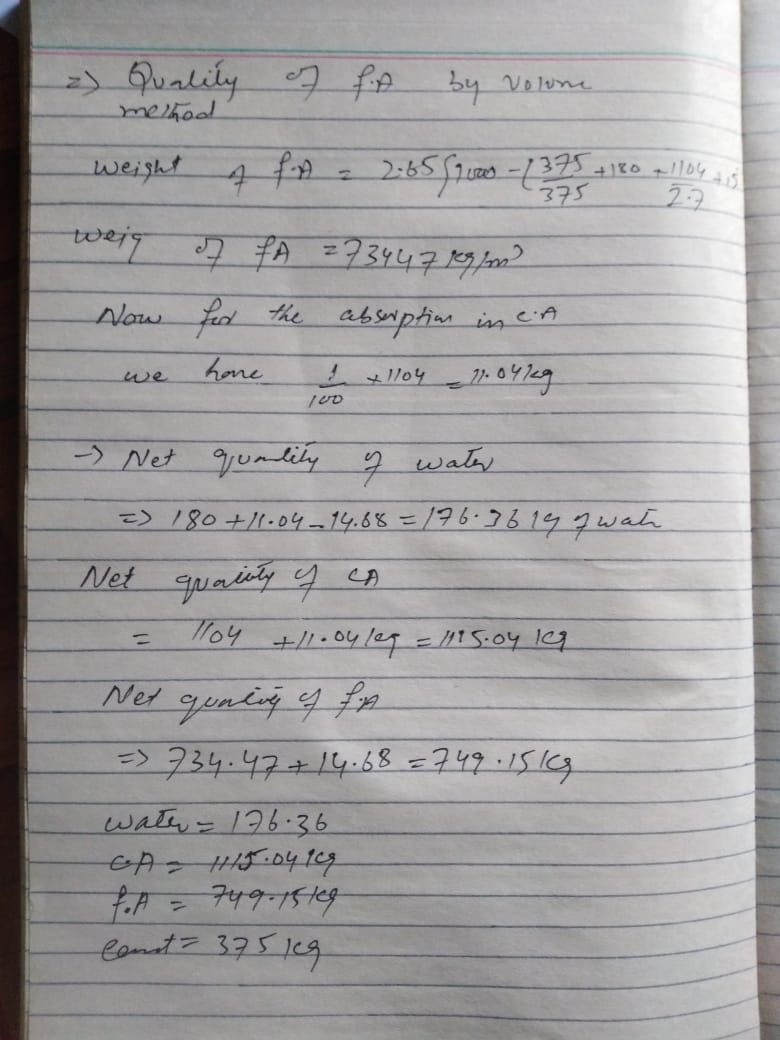 => Quality of f.A by volume
method
weight of f.A = 2.65 [1000 - (375/375 + 180 + 1104/2.7 + 15
weig of fA = 73447 kg/m³
Now for the absorption in C.A
we have 1/100 + 1104 = 11.04 kg
-> Net quantity of water
=> 180 + 11.04 - 14.68 = 176.36 kg of wate
Net quality of CA
= 1104 + 11.04 kg = 1115.04 kg
Net quality of f.A
=> 734.47 + 14.68 = 749.15 kg
water = 176.36
CA = 1115.04 kg
f.A = 749.15 kg
= 375 kg